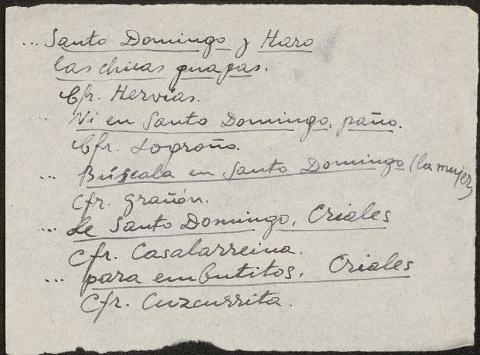 ... Santo Domingo y Haro
las chicas guapas.
Cfr. Hervías.
... Ni en Santo Domingo, paño.
Cfr. Logroño.
... Búscala en Santo Domingo (la mujer)
Cfr. Grañón.
... De Santo Domingo, Criales
Cfr. Casalarreina.
... para embutitos, Criales
Cfr. Cuzcurrita.